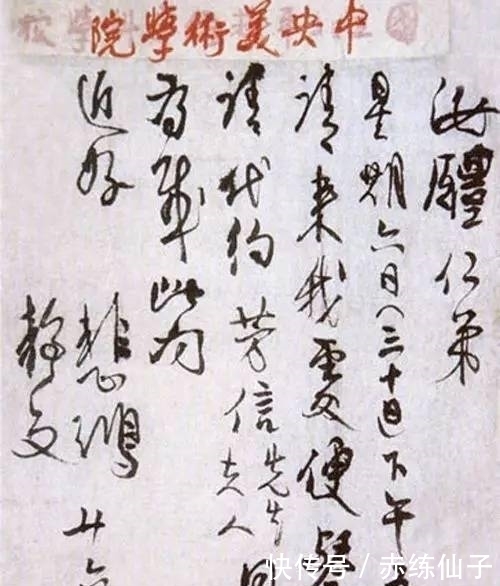 中央美術學院
汝醴仁弟
星期六日(三十日)下午
請来我處便餐
請代約芳信先生夫人
為幸此問
近好
悲鴻 廿
静文
快传号 / 赤练仙子